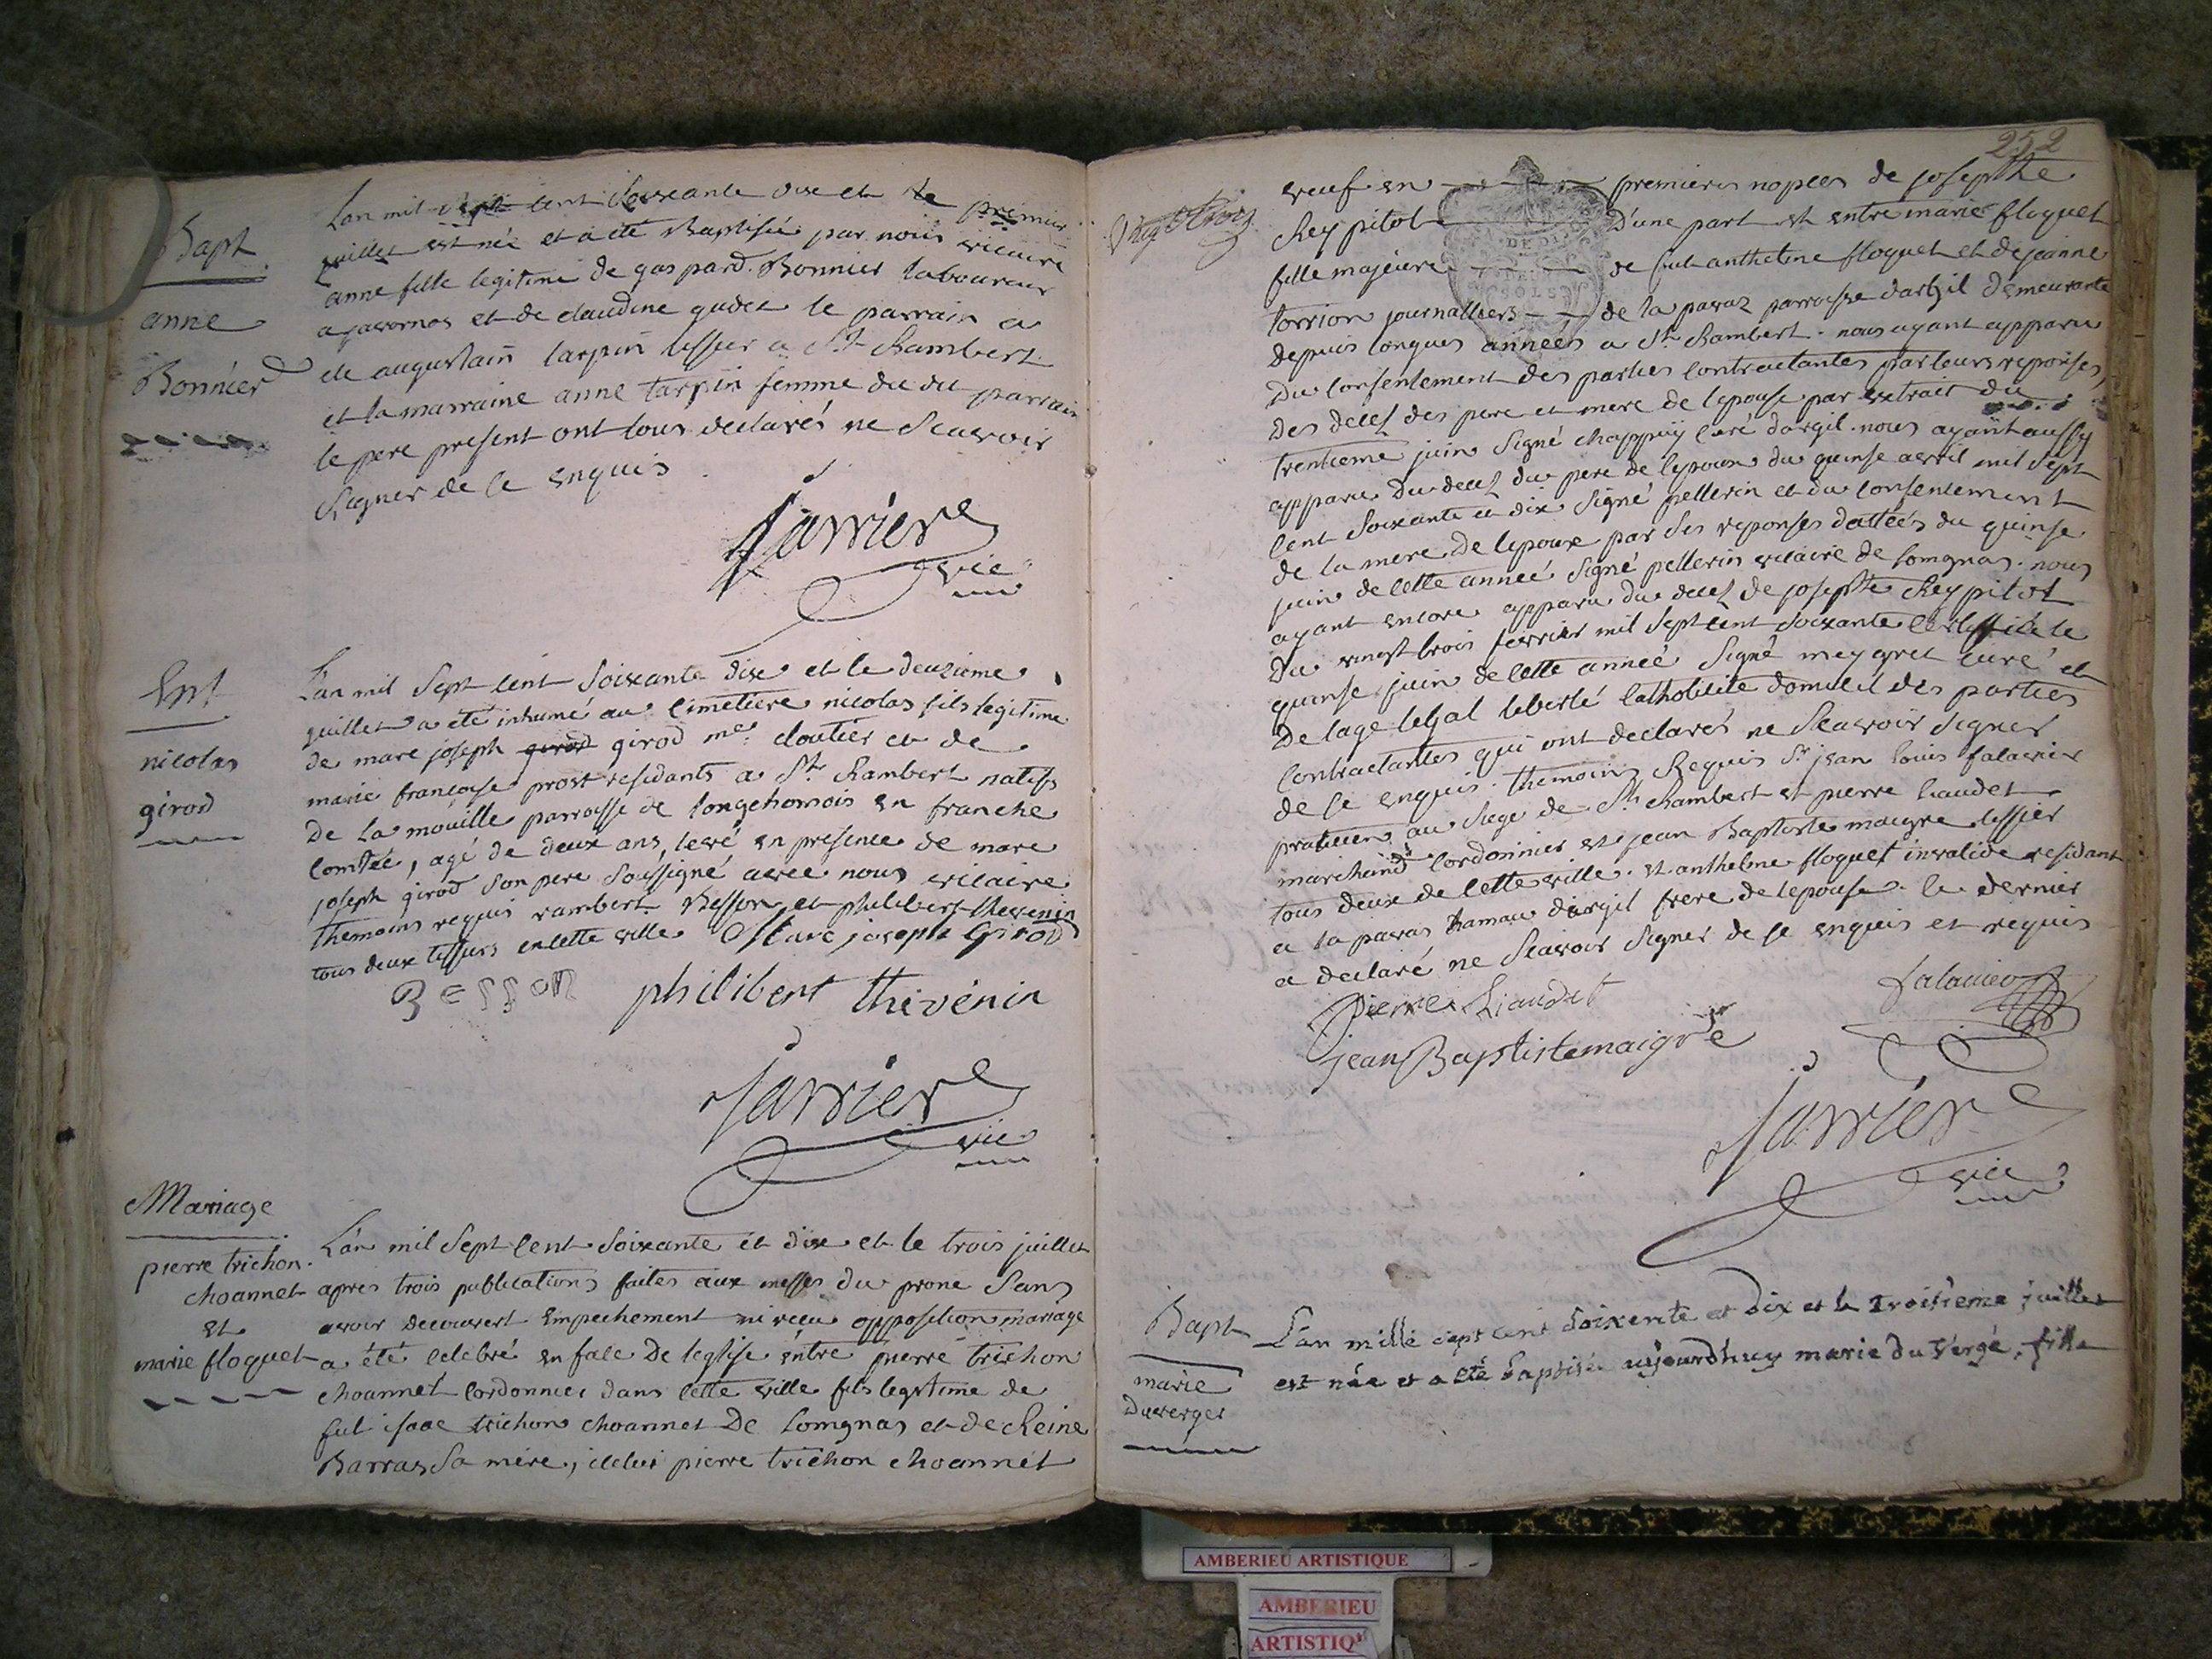 Bapt
anne
Bonnier
L'an mil sept cent soixante dix et le premier
juillet est née et a été Baptisée par nous vicaire
anne fille legitime de gaspard Bonnier laboureur
a javornos et de claudine gudet le parrain a
été augustain tarpin tissier a St Rambert
et la marraine anne tarpin femme du du parrain
le pere present ont tous declarés ne Scavoir
Signer de ce enquis
Jarrier
vic
Ent
nicolas
girod
L'an mil Sept cent Soixante dix et le deuzieme
juillet a été inhumé au cimetiere nicolas fils legitime
de marc joseph girod girod me cloutier et de
marie françoise prost residants a St Rambert natifs
De La mouille parroisse de longchomois en franche
Comtée, agé de deux ans, levé en presence de marc
joseph girod Son pere Soussigné avec nous vicaire
themoins requis rambert Besson et philibert thevenin
tous deux tissiers en cette ville Marc joseph Girod
Besson philibert thivénin
Jarrier
vic
Mariage
pierre trichon
choannet
et
marie floquet
L'an mil Sept Cent Soixante et dix et le trois juillet
apres trois publications faites aux messes du prone Sans
avoir decouvert Empechement ni recu opposition mariage
a été celebré en face De leglise entre pierre trichon
choannet Cordonnier dans cette ville fils legitime de
fut isaac trichon choannet De Comgnas et de Reine
Barras Sa mère, icelui pierre trichon choannet
252
veuf en premieres nopces de josepte
Reypitol D'une part et entre marie floquet
fille majeure de fut anthelme floquet et de jeanne
torrion journalliers de la pavaz parroisse dargil Demeurante
depuis longues années a St Rambert. nous ayant apparu
Du Consentement des parties Contractantes par leurs reponses,
Des deces des pere et mere de lepouse par extrait du
trentieme juin Signé chappuy curé dargil. nous ayant aussy
apparu Du deces du pere de lepoux du quinse avril mil Sept
Cent Soixante et dix Signé pellerin et du Consentement
de la mere De lepoux par Ses reponses dattées du quinse
juin de Cette année Signé pellerin vicaire de Comgnas. nous
ayant encore apparu du deces de josepte Reypitol
Du vingt trois fevrier mil Sept Cent Soixante
quinse juin de Cette année Signé meygret curé et
De lage legal liberté Catholicité domicil des parties
Contractantes qui ont declarés ne Scavoir Signer
de ce enquis. themoins Requis Sr jean louis falavier
praticien au Siege de St Rambert et pierre Liaudet
marchand Cordonnier et jean Baptiste maigre tissier
tous deux de Cette ville. et anthelme floquet invalide residant
a la pavas hamau dargil frere de lepouse. le dernier
a declaré ne Scavoir Signer de ce enquis et requis
Pierre Liaudet falavier
jean Baptiste maigre
Jarrier
vic
Bapt
marie
Duverger
L'an mille sept cent soixente et dix et le troisieme juillet
est née et a été baptisée aujourd'huy marie du vergé, fille
AMBERIEU ARTISTIQUE
AMBERIEU
ARTISTIQ